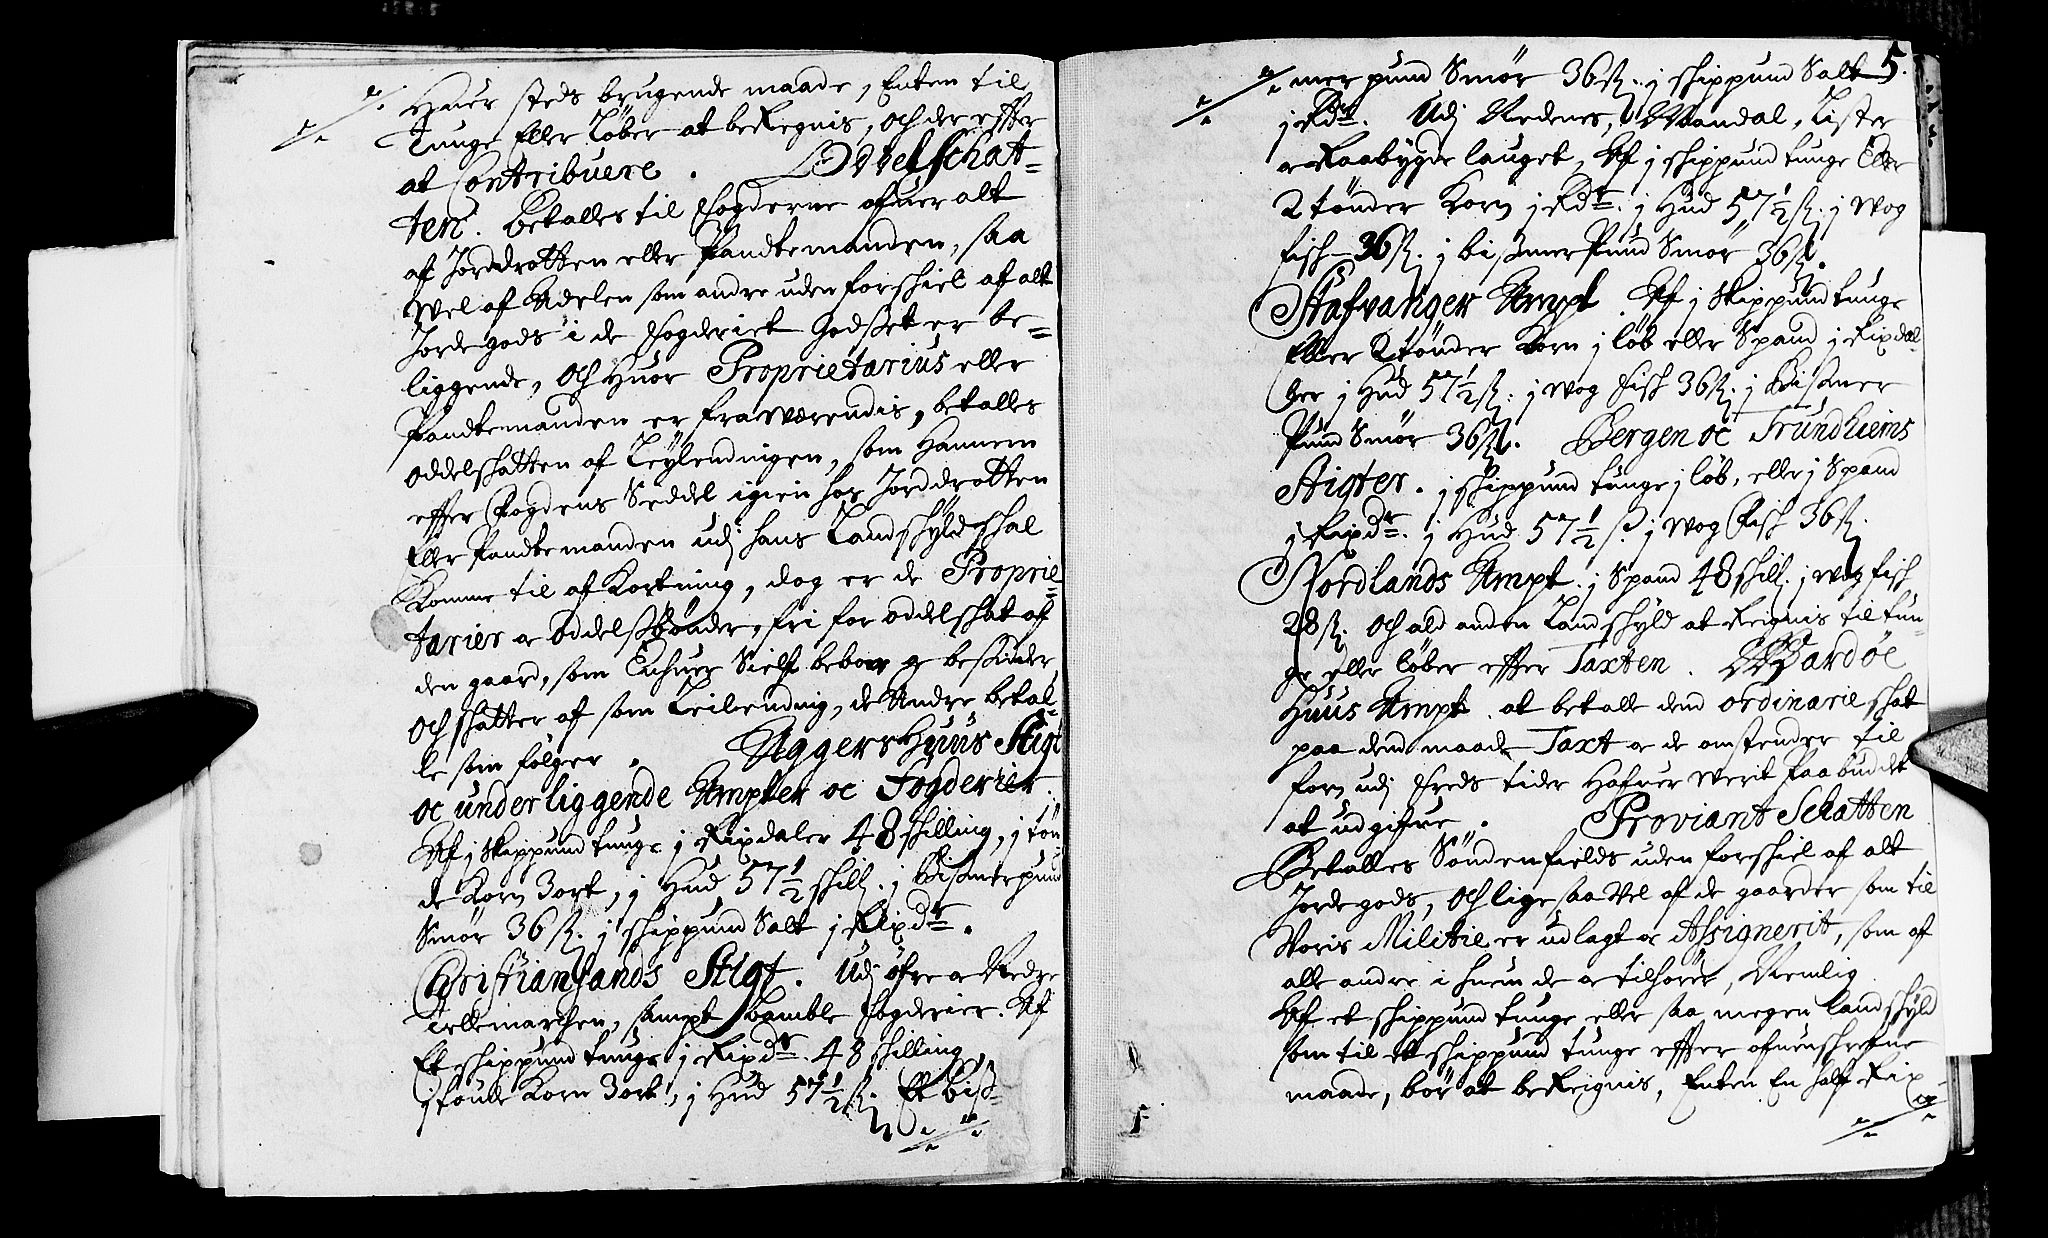 Huer steds brugende maade, Enten til
Tunge Eller Løber at beregnis, och der effter
at Contribuere. Oddelschat-
ten. Betalles til Fogderne ofuer alt
af Jorddrotten eller Pandtemanden, saa
Vel af Adelen som andre uden forschiel af alt
Jordegods i de Fogderiet Godset er be-
liggende, Och Huor Proprietarius eller
Pandtemanden er frawærendis, betalles
Oddelschatten af Leÿlendingen, som Hannem
effter Fogdens Seddel igien hos Jorddrotten
Eller Pandtemanden udj hans Landschyld schal
Komme til afkortning, dog er de Proprie-
tarier oc Odelsbønder, fri for oddelschat af
den gaard, som Enhuer Sielf beboer oc besidder
Och schatter af som Leilending, de Andre betal-
le som følger. AggersHuus Stigt
oc underliggende Ampter oc Fogderier.
Af j Skippund tunge j Rixdaler 48 schilling, j tøn-
de Korn 3 ort, j Hud 57½ schill. j Bismerpund
Smør 36 ß. j schippund Salt j Rixdr.
Christiansands Stigt. Udj øfre oc Nedre
Tellemarchen, sampt Bamble Fogderier. Af
Et schippund tunge j Rixdr. 48 schilling
j tønde Korn 3 ort, j Hud 57½ ß. Et biß-
5.
mer pund Smør 36 ß. j schippund Salt
j Rdr. Udj Nedenes, Mandal, Lister
oc Raabygdelauget, Af j schippund tunge Eller
2 tønder Korn j Rdr. j Hud 57½ ß. j wog
fisch 36 ß. j bismer Pund Smør 36 ß.
Stafvanger Ampt. Af j Skippund tunge
Eller 2 tønder Korn j løb eller Spand j Rixdal-
ler j Hud 57½ ß. j wog Fisch 36 ß. j Bismer
Pund Smør 36 ß. Bergen oc Trundhiems
Stigter. j schippund tunge j løb, eller j Spand
j Rixdr. j Hud 57½ ß. j wog Fisch 36 ß.
Nordlands Ampt. j Spand 48 schill. j wog fisch
28 ß. Och ald anden Landschyld at Reignis til tun-
ge eller løber effter Taxten. Wardøe
Huus Ampt. at betalle dend ordinarie schat
paa dend maade Taxt oc de omstender til
forn udj Freds tider Hafuer werit Paabuddet
at udgifue. Proviant Schatten
Betalles Søndenfields uden forschiel af alt
Jordegods, Och lige saa Vel af de gaarder som til
Voris Militie er udlagt oc Assignerit, som af
alle andre i huem de oc tilhører, Nemlig
Af et schippund tunge eller saa megen landschyld
som til et schippund tunge effter ofuenschrefne
maade, bør at beReignis, Enten En half Rix-